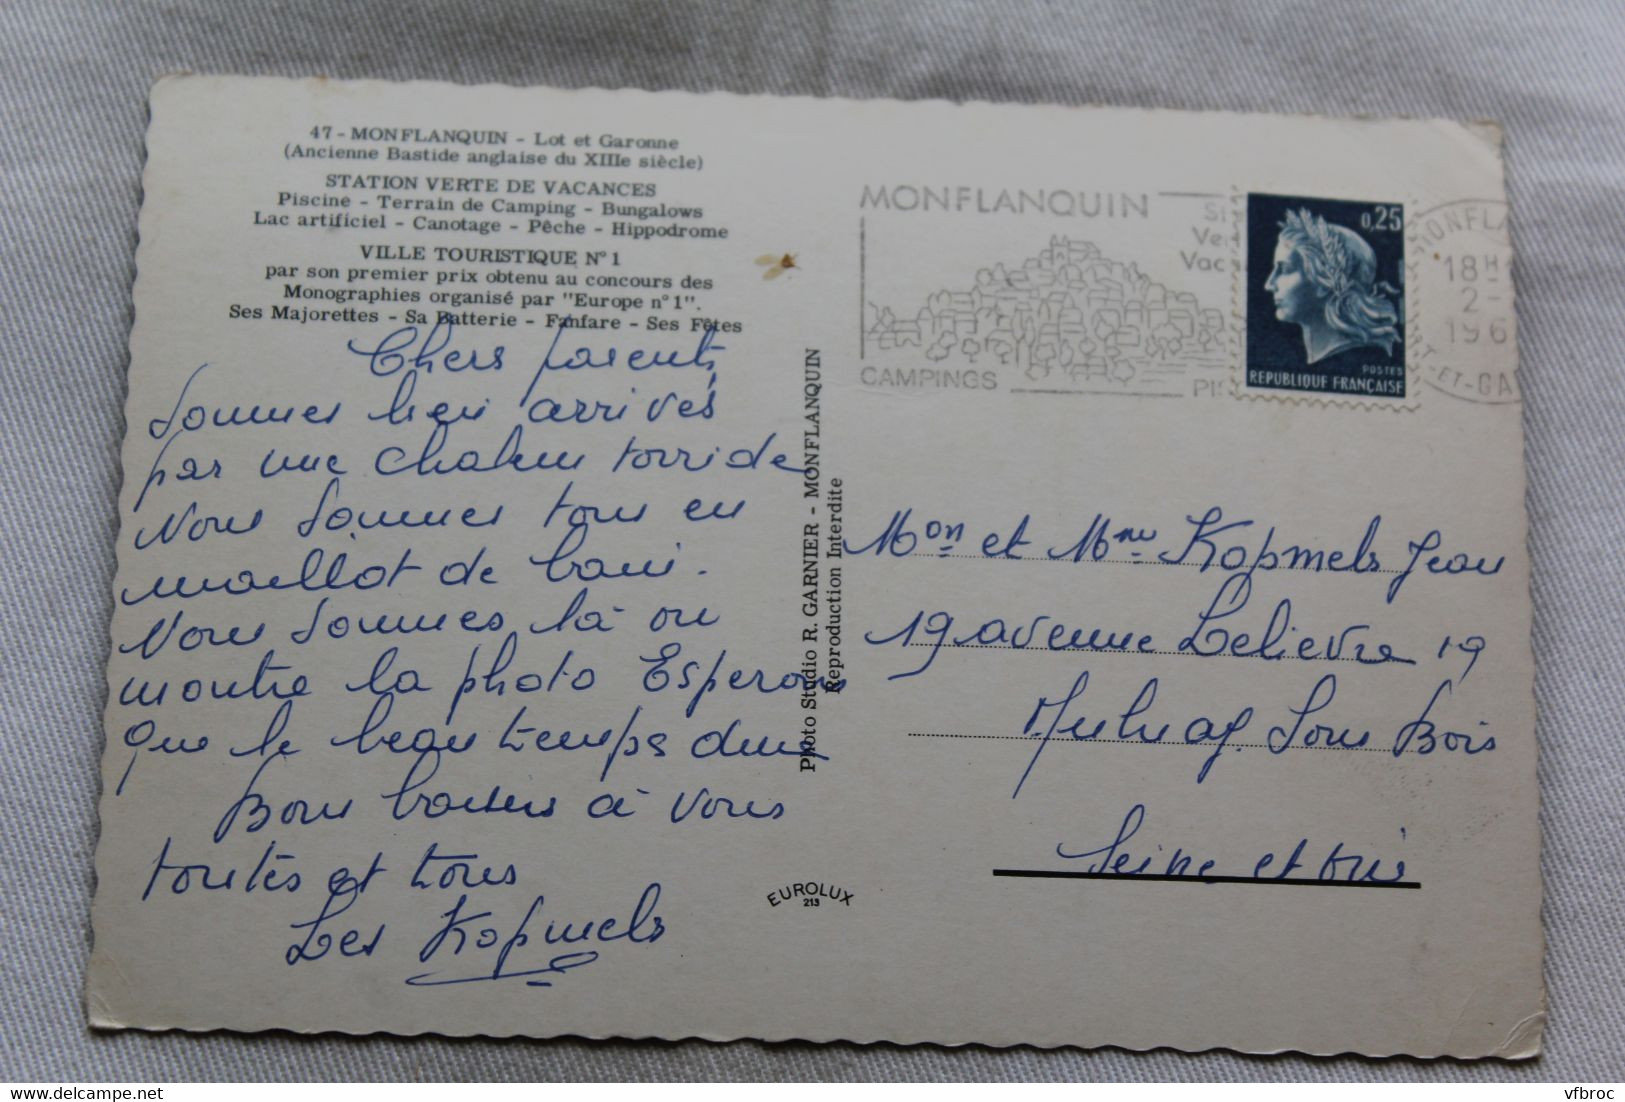 47 - MONFLANQUIN - Lot et Garonne
(Ancienne Bastide anglaise du XIIIe siècle)
STATION VERTE DE VACANCES
Piscine - Terrain de Camping - Bungalows
Lac artificiel - Canotage - Pêche - Hippodrome
VILLE TOURISTIQUE N° 1
par son premier prix obtenu au concours des
Monographies organisé par "Europe n° 1".
Ses Majorettes - Sa Batterie - Fanfare - Ses Fêtes
Chers parents,
Sommes bien arrivés
par une chaleur torride
Nous sommes tous en
maillot de bain.
Nous sommes là où
montre la photo Esperons
que le beau temps dure
Bons baisers à vous
toutes et tous
Les Kopmels
Photo Studio R. GARNIER - MONFLANQUIN
Reproduction Interdite
EUROLUX
213
MONFLANQUIN
CAMPINGS
0,25
POSTES
REPUBLIQUE FRANÇAISE
MONFLA
18H
2 -
196
ET-GA
Mon et Mme Kopmels Jean
19 avenue Lelievre 19
Aulnay Sous Bois
Seine et Oise
vfbroc